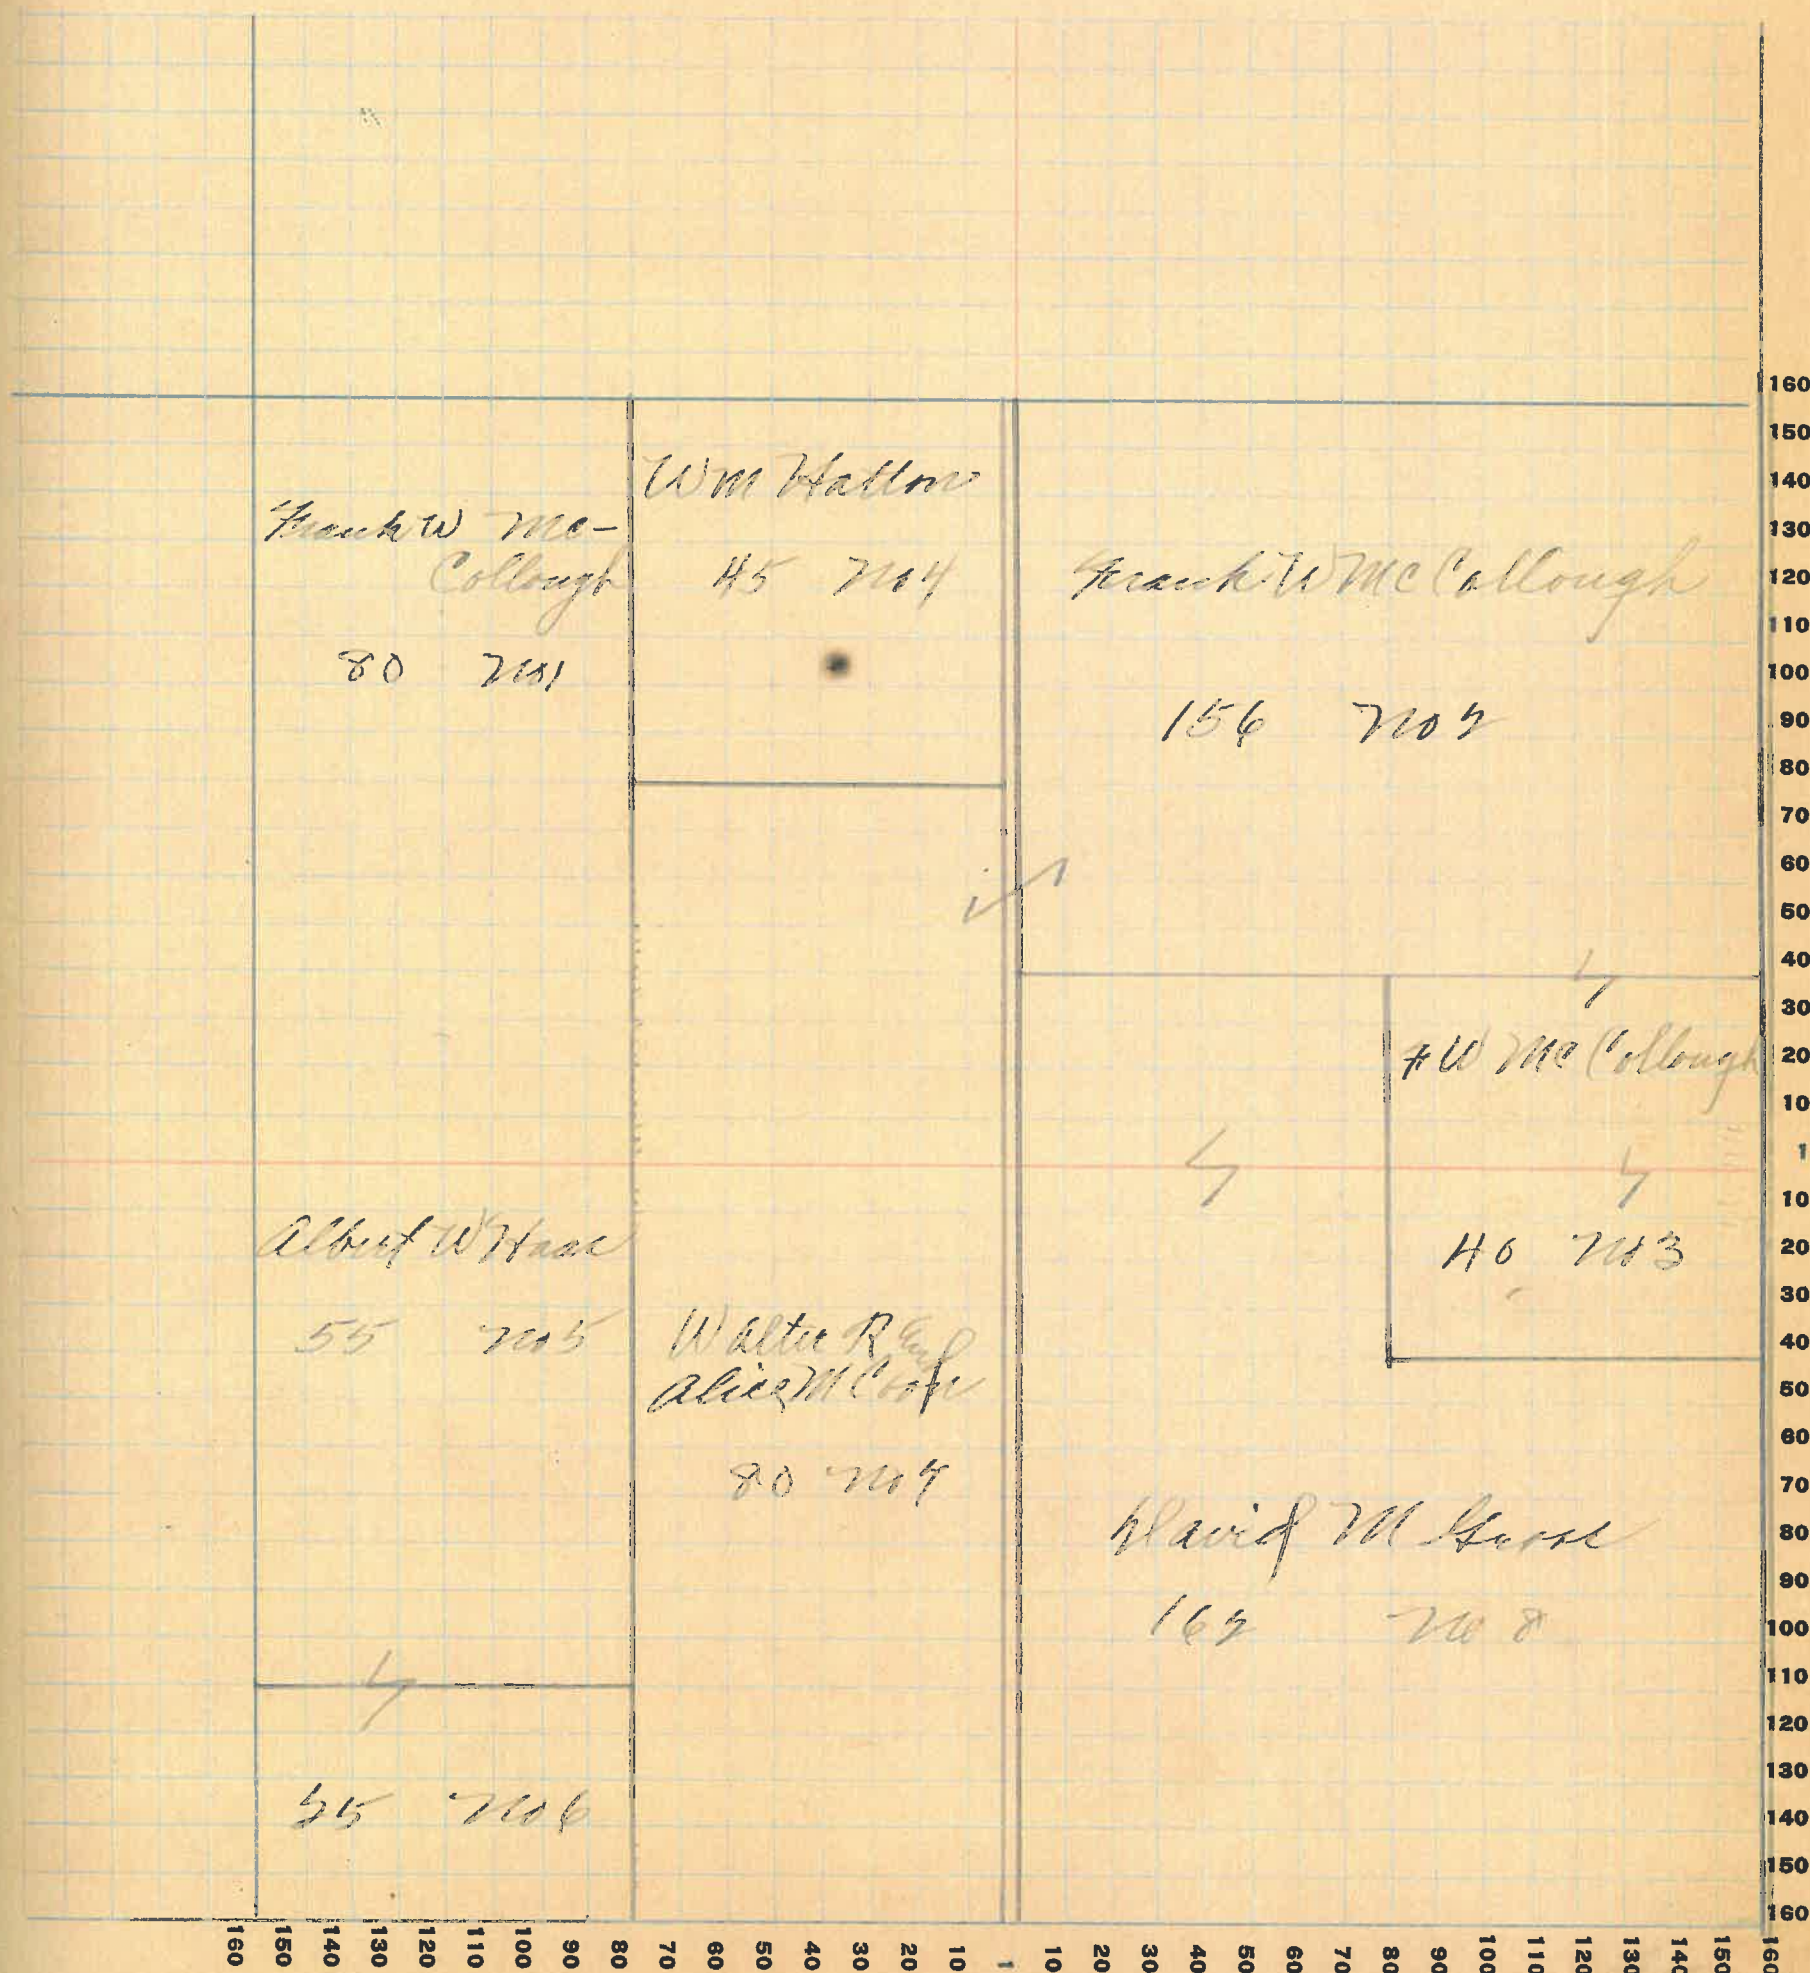 Wm Hatton
45 No 4
Frank W Mc-
Collough
80 No 1
Frank W McCollough
156 No 2
F W McCollough
40 No 3
Albert W Haas
55 No 5
Walter R and
Alice M
80 No 7
David M
162 No 8
25 No 6
160
150
140
130
120
110
100
90
80
70
60
50
40
30
20
10
1
10
20
30
40
50
60
70
80
90
100
110
120
130
140
150
160
160 150 140 130 120 110 100 90 80 70 60 50 40 30 20 10 1 10 20 30 40 50 60 70 80 90 100 110 120 130 140 150 160